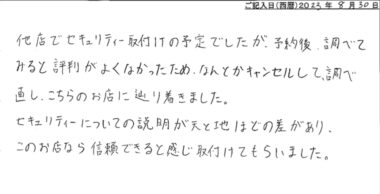 ご記入日(西暦)2023年8月30日
他店でセキュリティー取付けの予定でしたが、予約後、調べて
みると評判がよくなかったため、なんとかキャンセルして、調べ
直し、こちらのお店に辿り着きました。
セキュリティーについての説明が天と地ほどの差があり、
このお店なら信頼できると感じ取付けてもらいました。